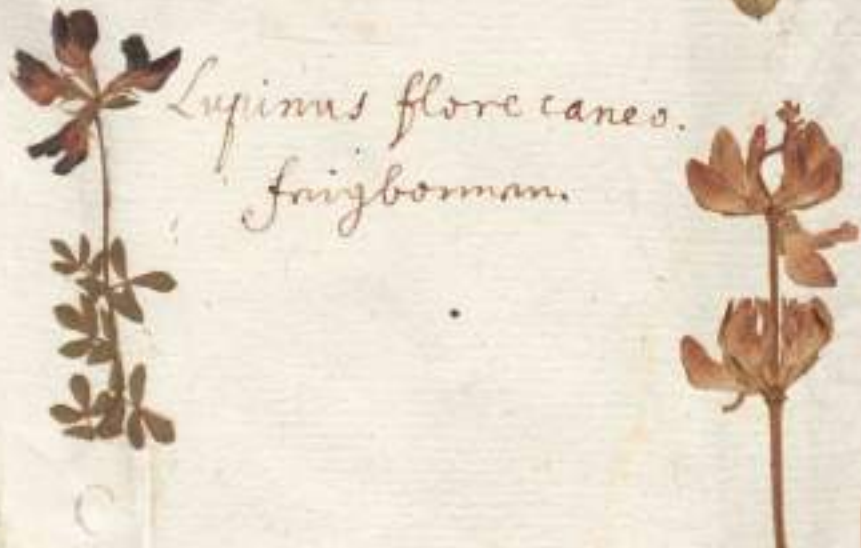 Lupinus flore caneo.
feigbonnen.